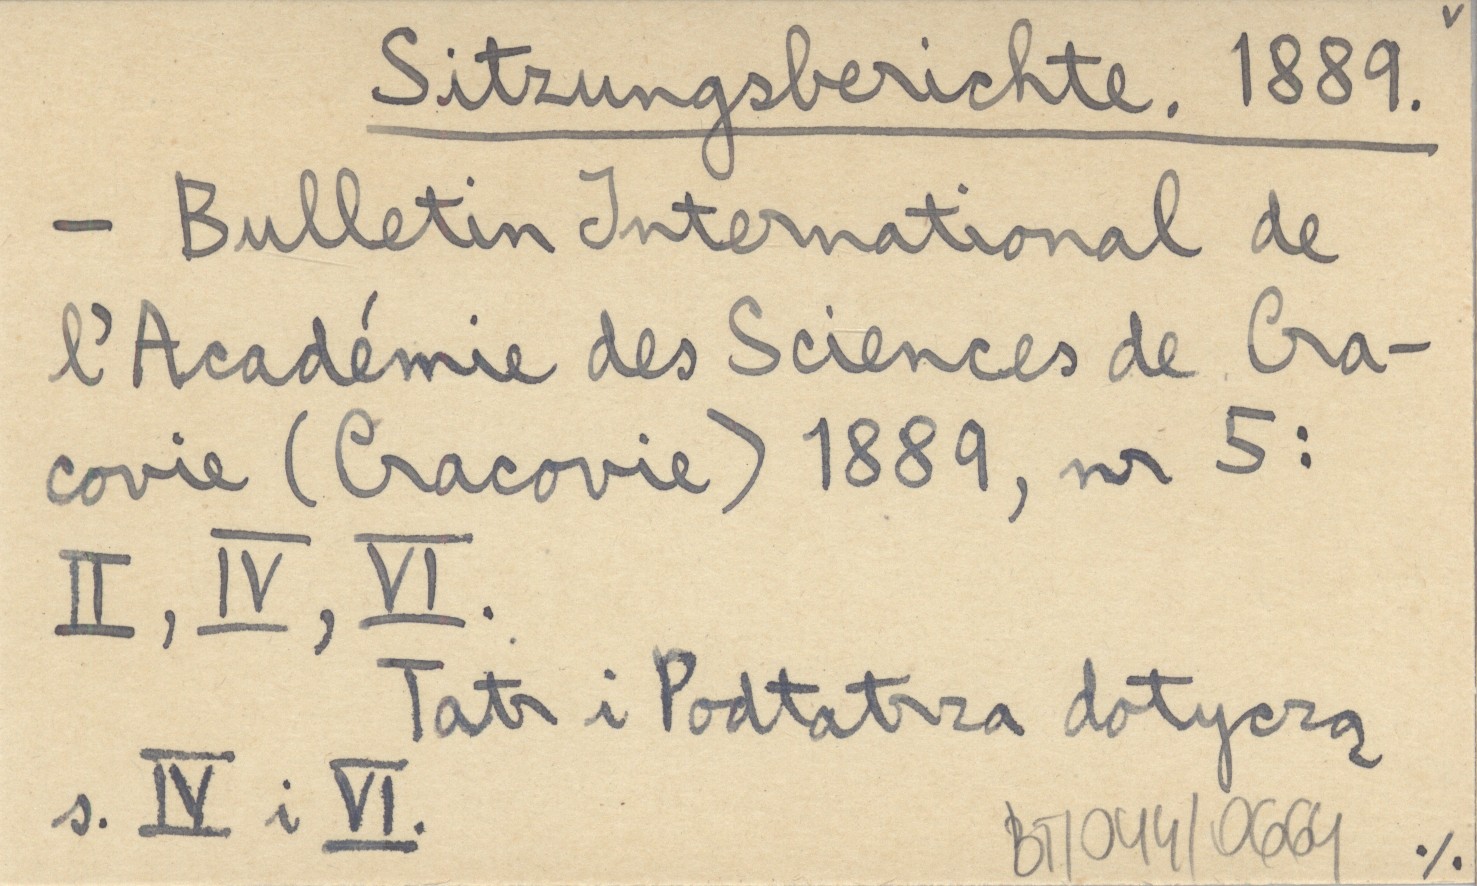 v
Sitzungsberichte. 1889.
– Bulletin International de
l'Académie des Sciences de Cra-
covie (Cracovie) 1889, nr 5:
II, IV, VI.
Tatr i Podtatrza dotyczą
s. IV i VI.
BT/044/0664
./.